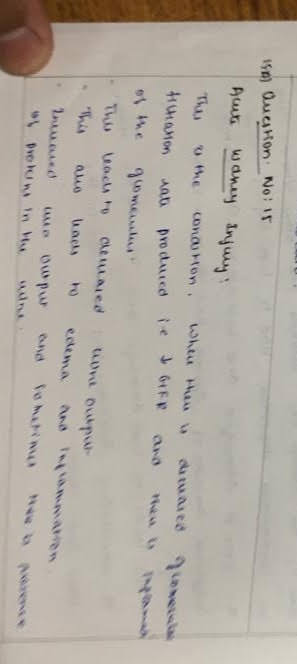 15a) Question: No: 15
Acute kidney Injury:
This is the condition, when there is decreased glomerular
filtration rate produced i.e ↓ GFR and there is inflamed
of the glomeruli.
• This leads to decreased urine output.
• This also leads to edema and inflammation.
• Increased urine output and sometimes there is presence
of proteins in the urine.